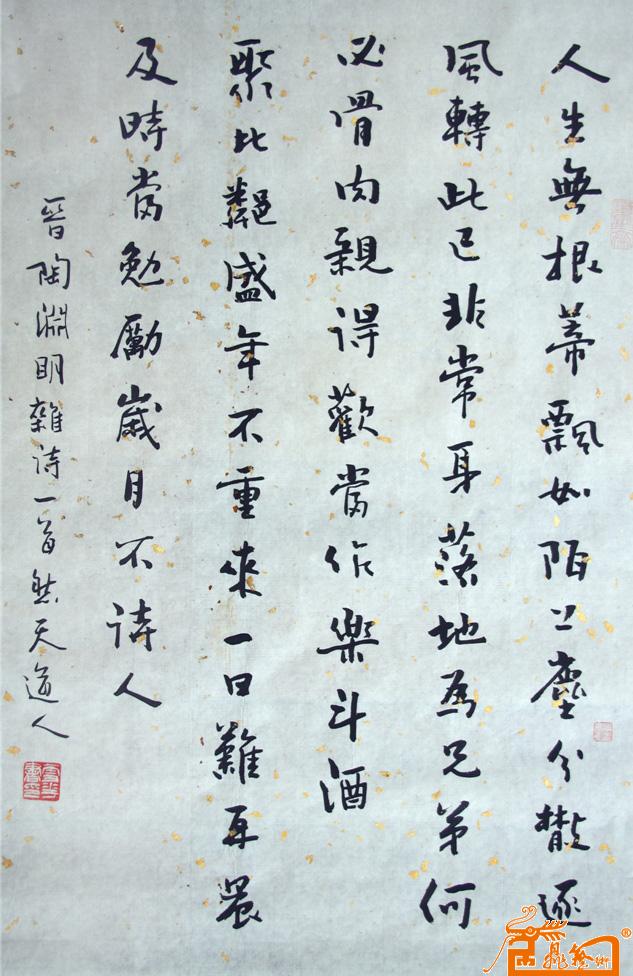 人生無根蒂飄如陌上塵分散逐
風轉此已非常身落地為兄弟何
必骨肉親得歡當作樂斗酒
聚比鄰盛年不重來一日難再晨
及時當勉勵歲月不詩人
晉陶淵明雜詩一首然天逸人